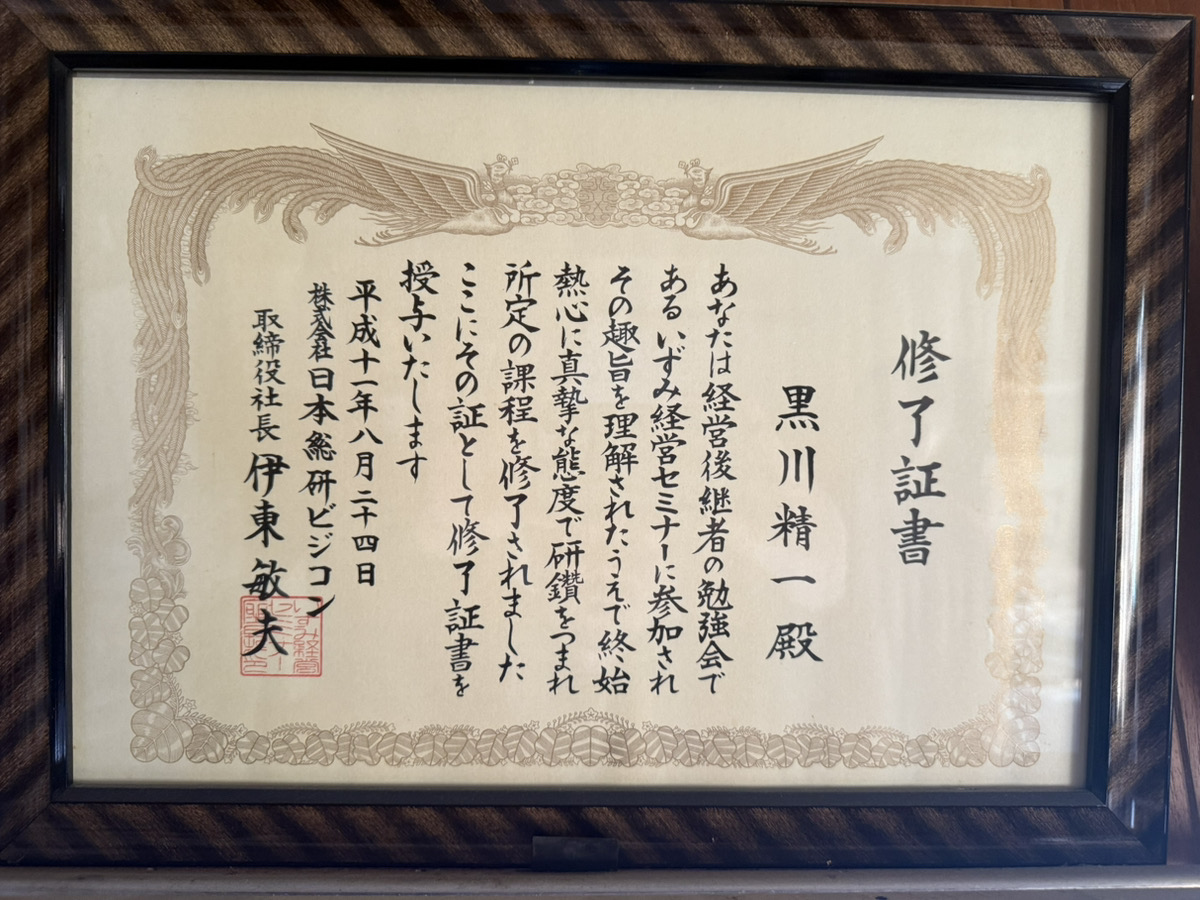 修了証書
黒川精一殿
あなたは経営後継者の勉強会で
あるいずみ経営セミナーに参加され
その趣旨を理解されたうえで終始
熱心に真摯な態度で研鑽をつまれ
所定の課程を修了されました
ここにその証として修了証書を
授与いたします
平成十一年八月二十四日
株式会社日本総研ビジコン
取締役社長 伊東敏夫